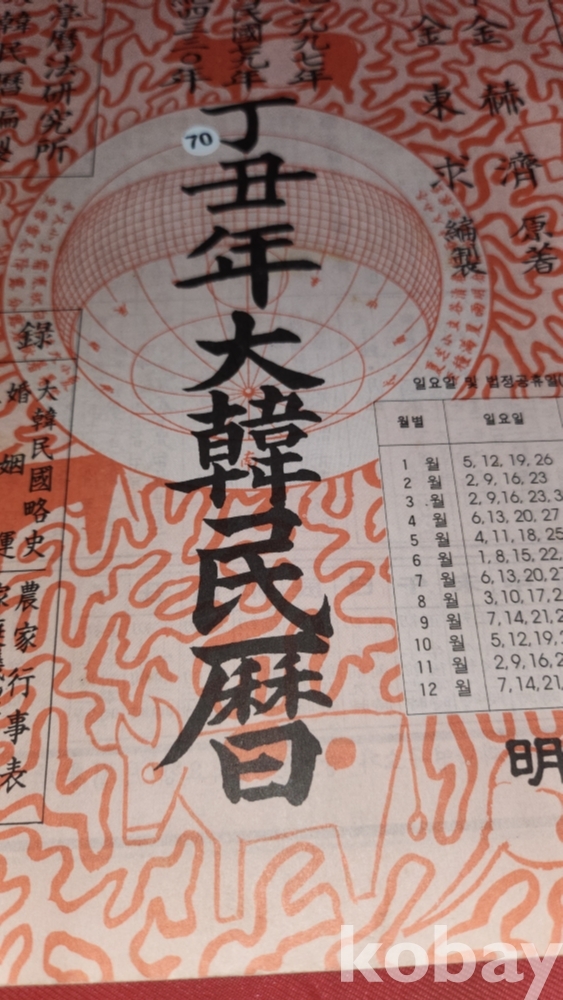 丁丑年大韓民曆
70
一九九七年
民國七九年
四三三〇年
曆法研究所
韓民曆編製
金赫濟 原著
金東求 編製
錄
大韓民國略史
婚姻運
農家行事表
일요일 및 법정공휴일
월별 일요일
1 월 5, 12, 19, 26
2 월 2, 9, 16, 23
3 월 2, 9, 16, 23, 3
4 월 6, 13, 20, 27
5 월 4, 11, 18, 25
6 월 1, 8, 15, 22,
7 월 6, 13, 20, 27
8 월 3, 10, 17, 2
9 월 7, 14, 21, 2
10 월 5, 12, 19, 2
11 월 2, 9, 16, 2
12 월 7, 14, 21,
明
kobay